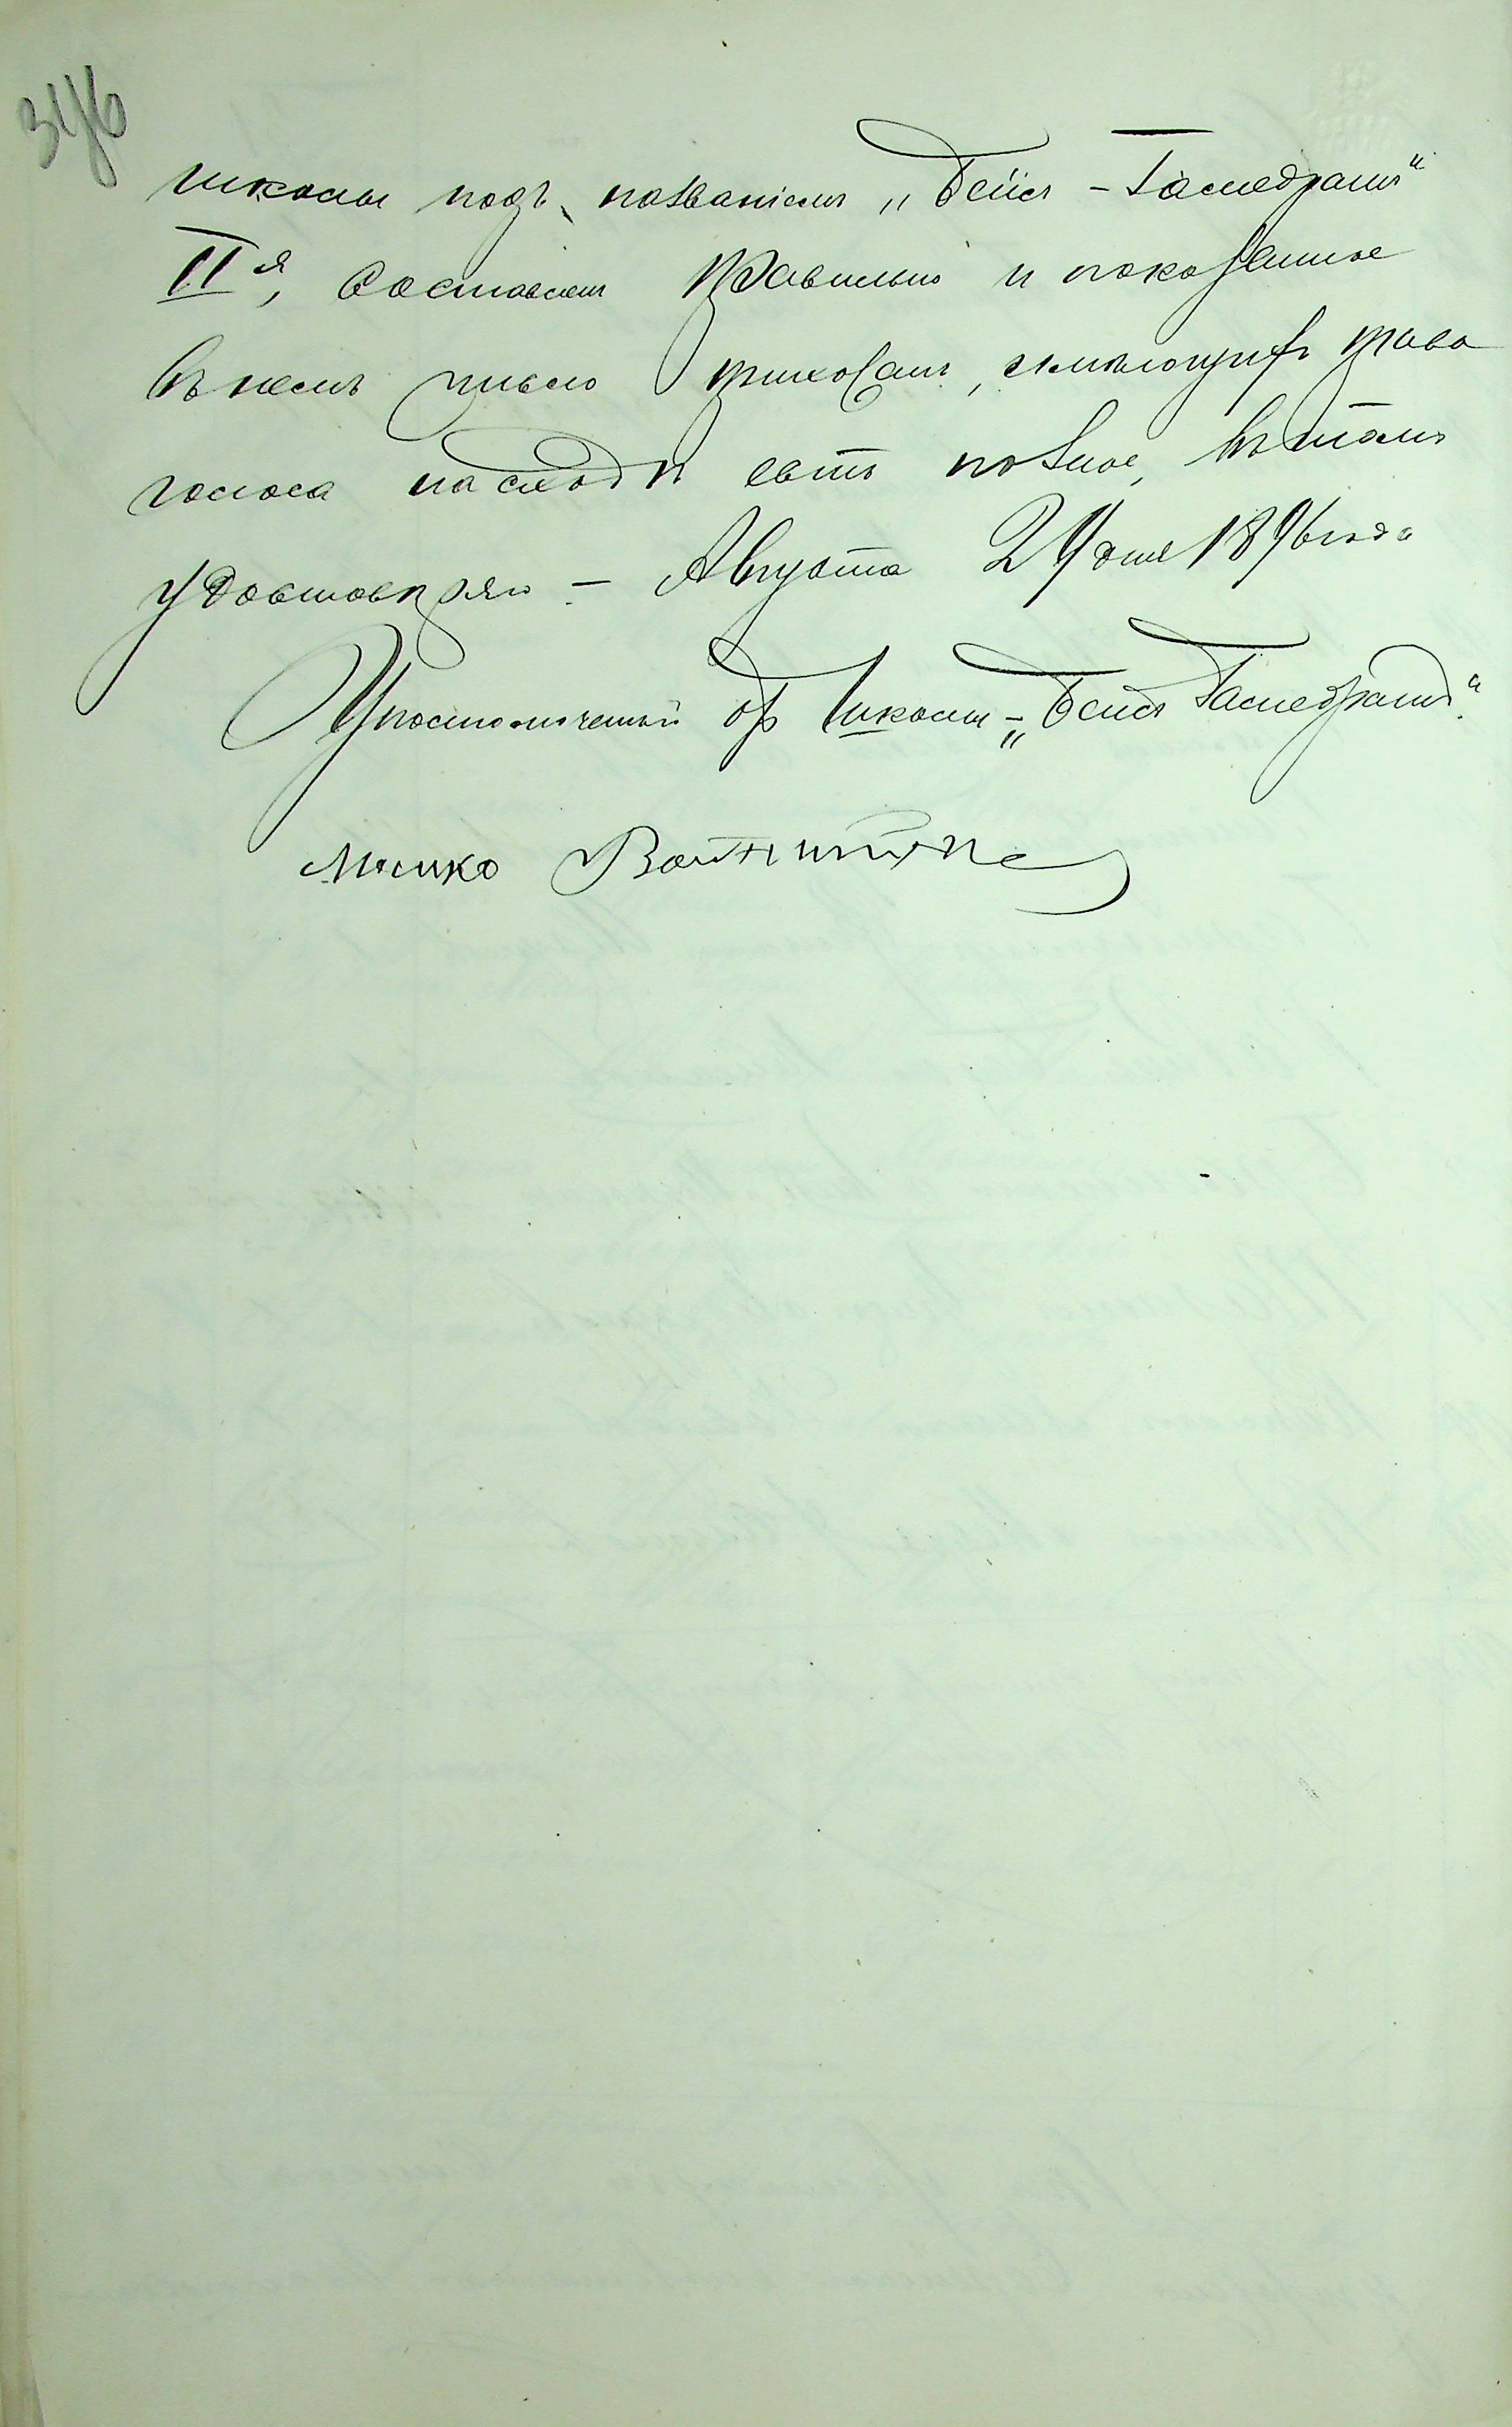 396
школы подъ названіемъ „Бейсъ-Гамедрашъ“
II я, составленъ правильно и показанное
въ немъ число прихожанъ, имѣющихъ право
голоса на сходѣ есть полное, въ томъ
удостовѣряю – Августа 29 дня 1896 года
Уполномоченный отъ Школы – „Бейсъ Гамедрашъ“.